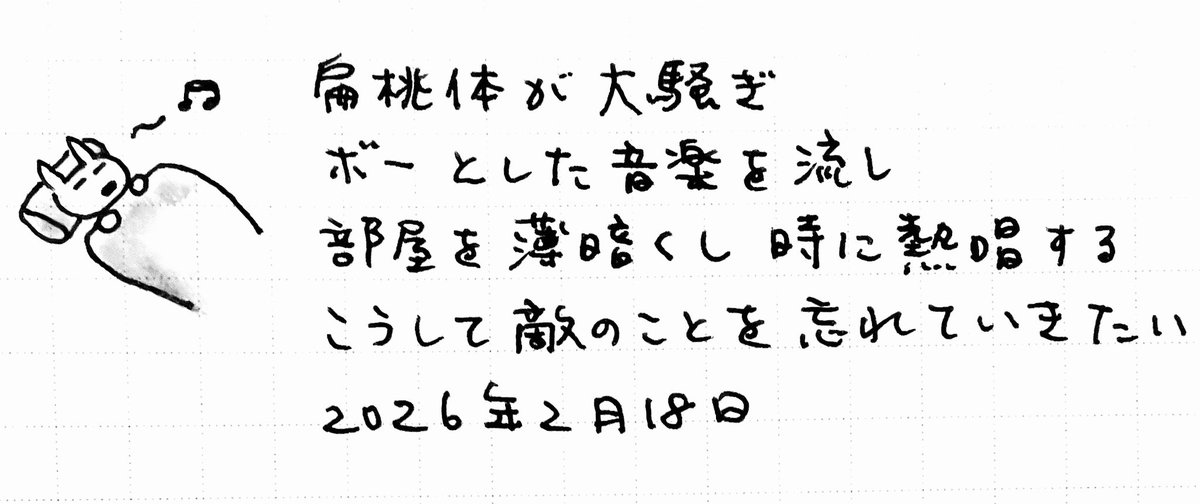 扁桃体が大騒ぎ
ボーとした音楽を流し
部屋を薄暗くし 時に熱唱する
こうして敵のことを忘れていきたい
2026年2月18日